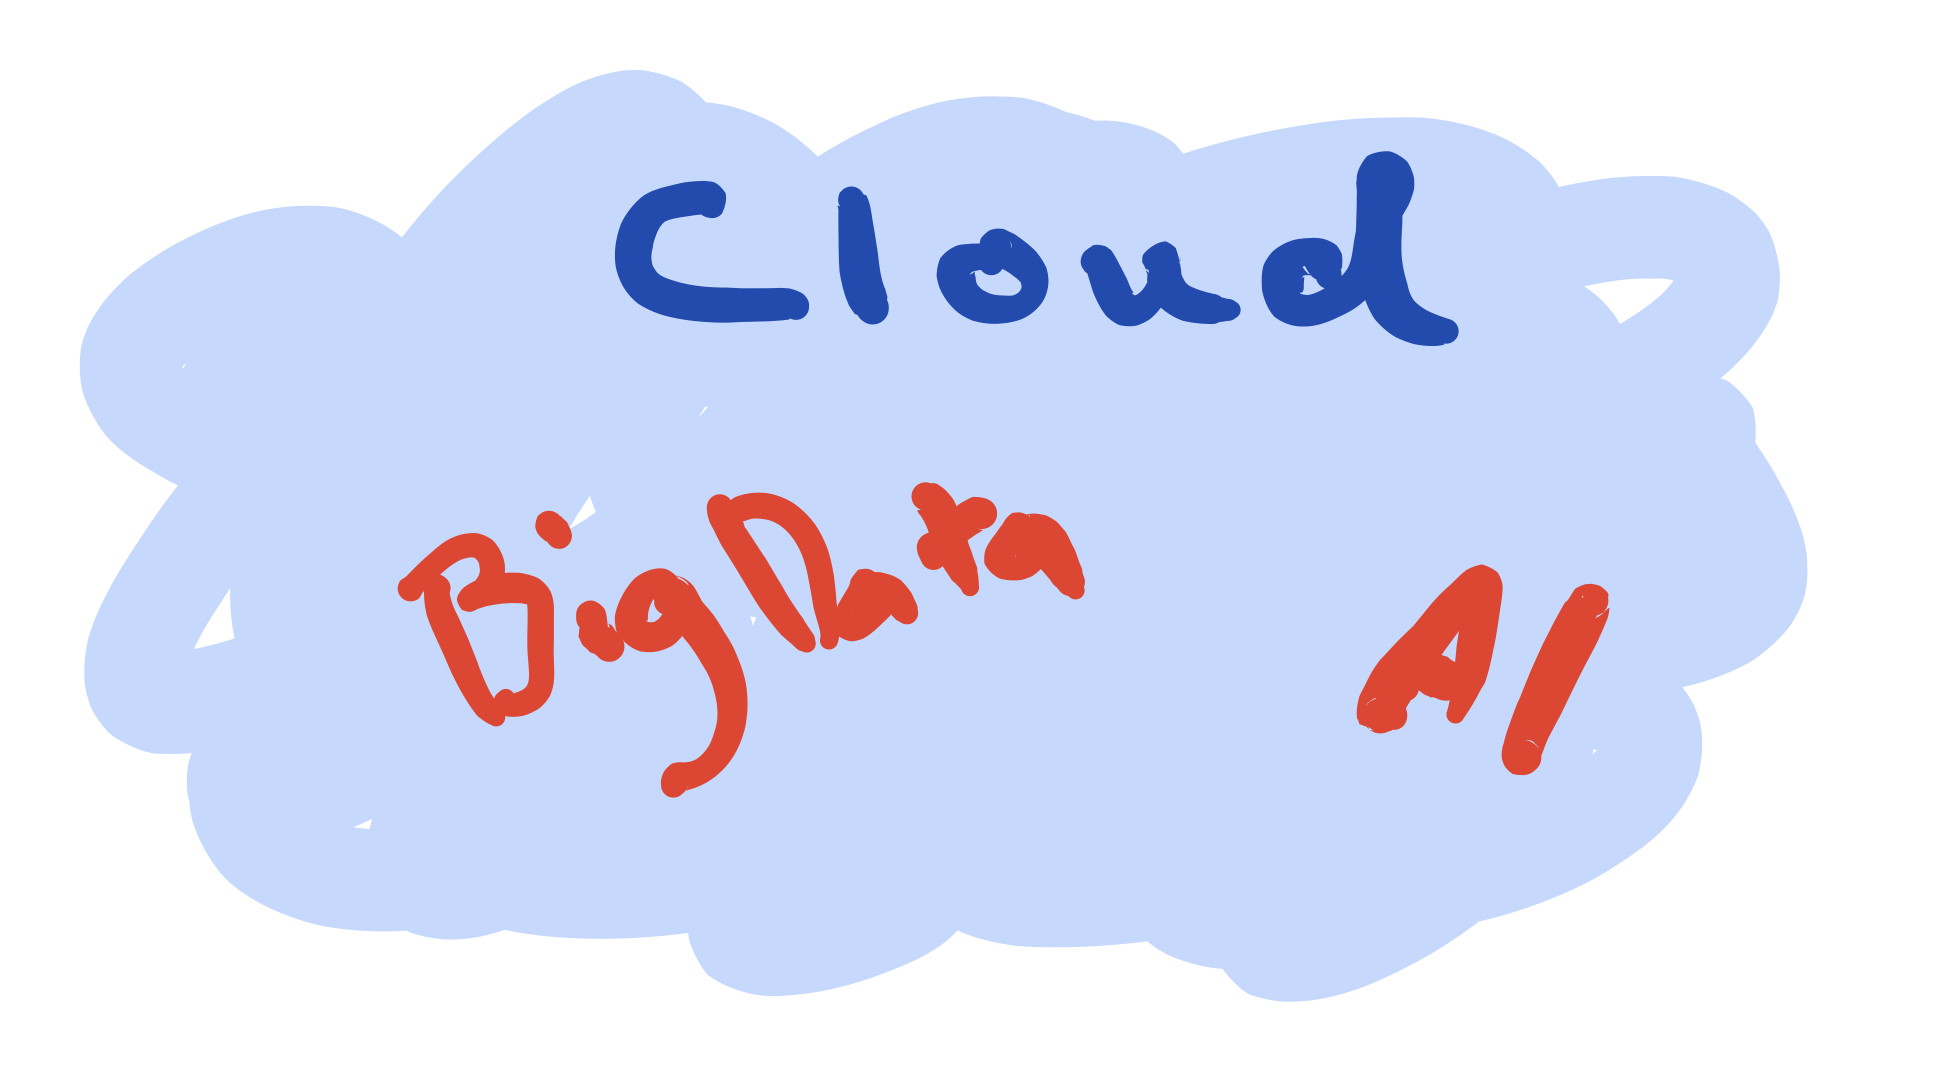 Cloud
Big Data
AI